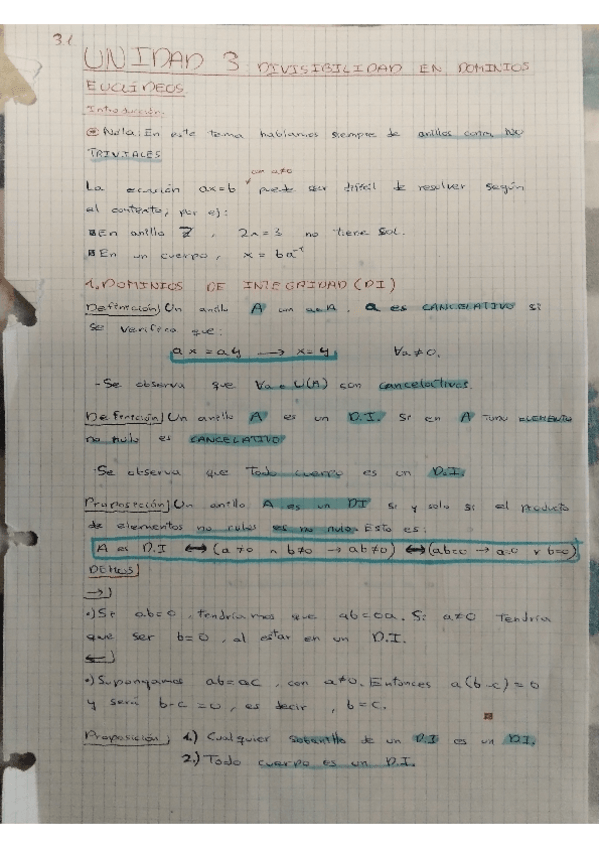 3.1
UNIDAD 3 DIVISIBILIDAD EN DOMINIOS
EUCLÍDEOS
Introducción
Nota: En este tema hablamos siempre de anillos conm. NO
TRIVIALES
con a≠0
La ecuación ax=b puede ser difícil de resolver según
el contexto, por ej:
En anillo Z, 2x=3 no tiene sol.
En un cuerpo, x = ba⁻¹
1. DOMINIOS DE INTEGRIDAD (DI)
Definición) Un anillo A con a∈A. a es CANCELATIVO si
se verifica que:
ax = ay → x=y ∀a≠0.
-Se observa que ∀a∈U(A) con cancelativos
Definición) Un anillo A es un D.I. si en A TODO ELEMENTO
no nulo es CANCELATIVO
·Se observa que Todo cuerpo es un D.I.
Proposición) Un anillo A es un DI si y solo si el producto
de elementos no nulos es no nulo. Esto es:
A es D.I ↔ (a≠0 ∧ b≠0 → ab≠0) ↔ (ab=0 → a=0 ∨ b=0)
DEMOS)
→)
•) Si ab=0, tendríamos que ab=0a. Si a≠0 Tendría
que ser b=0, al estar en un D.I.
←)
•) Supongamos ab=ac, con a≠0. Entonces a(b-c)=0
y será b-c=0, es decir, b=c.
Proposición) 1.) Cualquier subanillo de un D.I es un DI.
2.) Todo cuerpo es un D.I.